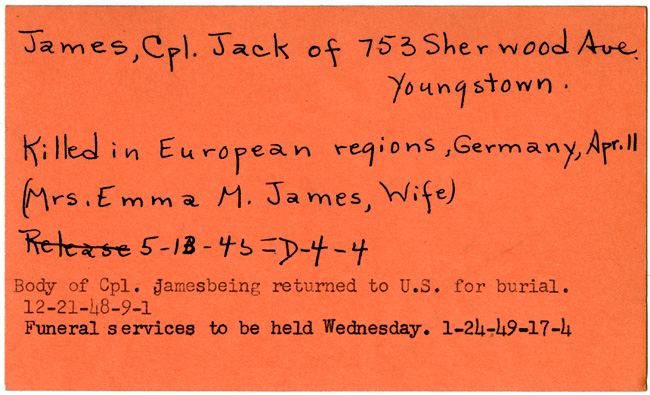 James, Cpl. Jack of 753 Sherwood Ave.
Youngstown.
Killed in European regions, Germany, Apr. 11
(Mrs. Emma M. James, Wife)
Release 5-13-45=D-4-4
Body of Cpl. Jamesbeing returned to U.S. for burial.
12-21-48-9-1
Funeral services to be held Wednesday. 1-24-49-17-4